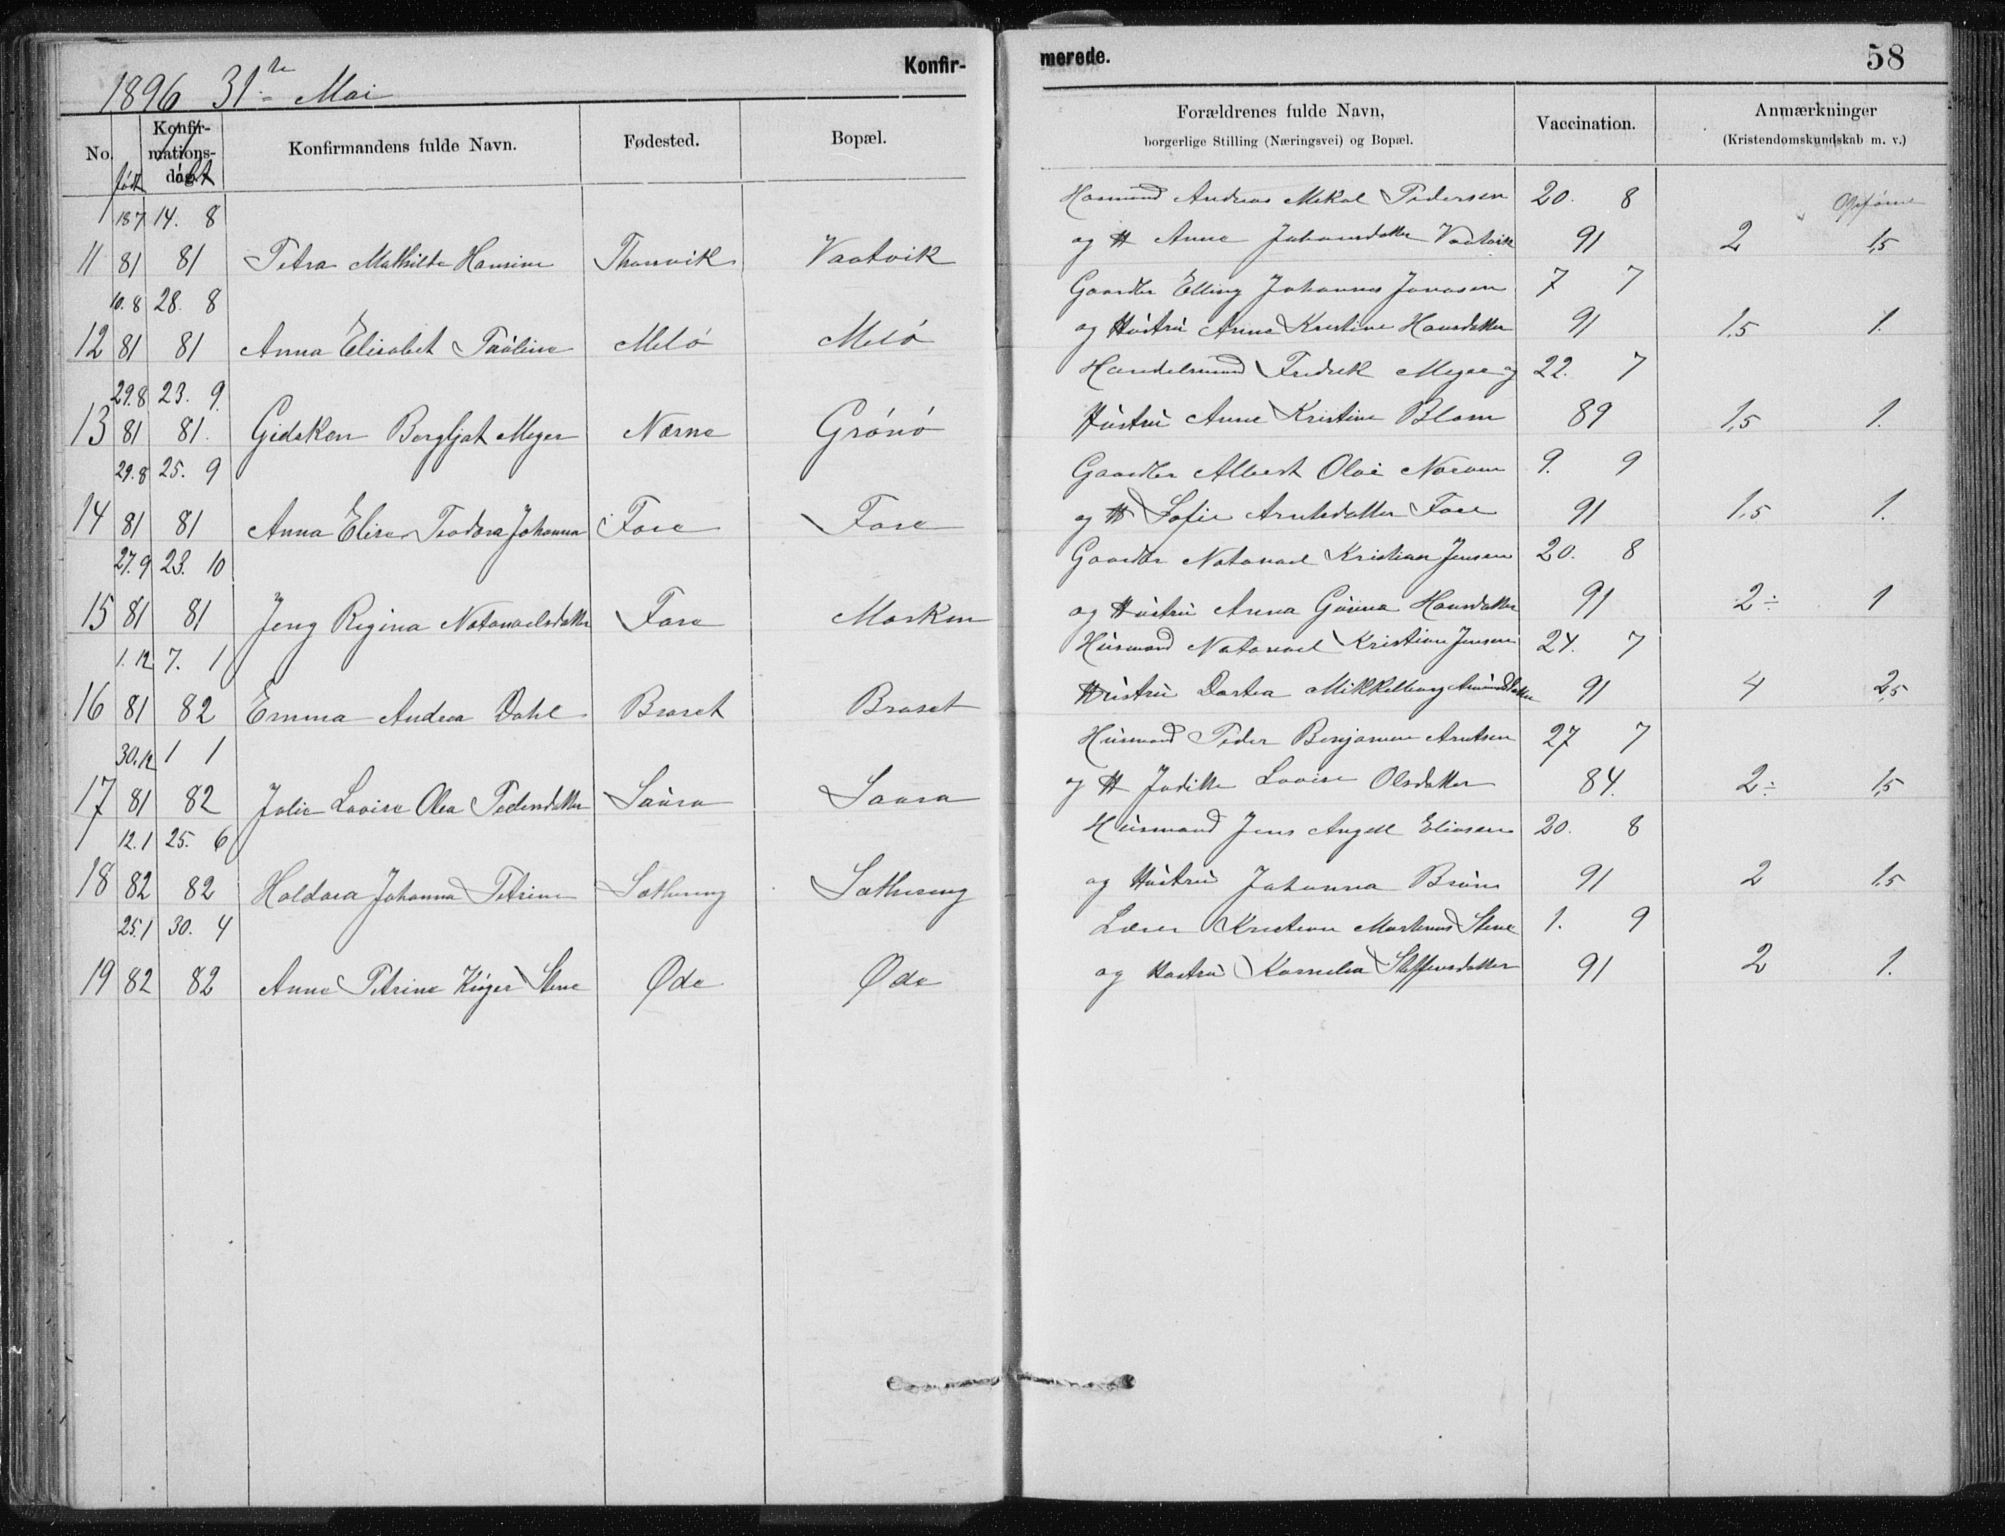 Konfir-
1896 31te Mai
No.
født
Konfir-
mations-
dag.
Konfirmandens fulde Navn.
Fødested.
Bopæl.
13 7 14. 8
11 81 81 Petra Mathilde Hansine Vaatvik
10. 8 28. 8
12 81 81 Anna Elisabet Paúline Meló Meló
29. 8 23. 9.
13 81 81. Gidsken Bergljot Meyer Nærne Grónó
29. 8 25. 9
14 81 81 Anna Elise Teodora Johanna Fore Fore
27. 9 23. 10
15 81 81 Jeng Regina Natanaelsdatter Fore Marken
1. 12 7. 1
16 81 82 Emma Andrea Dahl Braset Braset
30. 12 1 1
17 81 82 Julie Lovise Olea Pedersdatter Saúra Saura
12. 1 25. 6
18 82 82 Haldora Johanna Petrine
25. 1 30. 4
19 82 82 Anne Petrine Krúger Stene Øde Øde
merede.
58
Forældrenes fulde Navn,
borgerlige Stilling (Næringsvei) og Bopæl.
Vaccination.
Anmærkninger
(Kristendomskundskab m. v.)
Andreas Mekal Pedersen 20. 8
og H Anne Johansdatter Vaatvik 91 2 1,5
Gaardbr Elling Johannes Jonasen 7 7
og Hústrú Anne Kristine Hansdatter 91 1,5 1.
Handelsmand Fredrik Meyer og 22. 7
Hústrú Anne Kristine Blom 89 1,5 1.
Gaardbr Albert Olai 9. 9
og H Sofie Arntsdatter Fore 91 1,5 1.
Gaardbr Natanael Kristian Jensen 20. 8
og Hústrú Anna Gúrina Hansdatter 91 2÷ 1
Húsmand Natanael Kristian Jensen 24. 7
Hústrú Dortea Mikkelborg Amundsdatter 91 4 2,5
Húsmand Peder Benjamin Arntsen 27 7
og H Judithe Lovise Olsdatter 84. 2÷ 1,5
Húsmand Jens Angell Eliasen 20. 8
og Hústrú Johanna Brún 91 2 1,5
Lærer Kristian Martinus Stene 1. 9
og Hústrú Kornelia Steffensdatter 91 2 1.